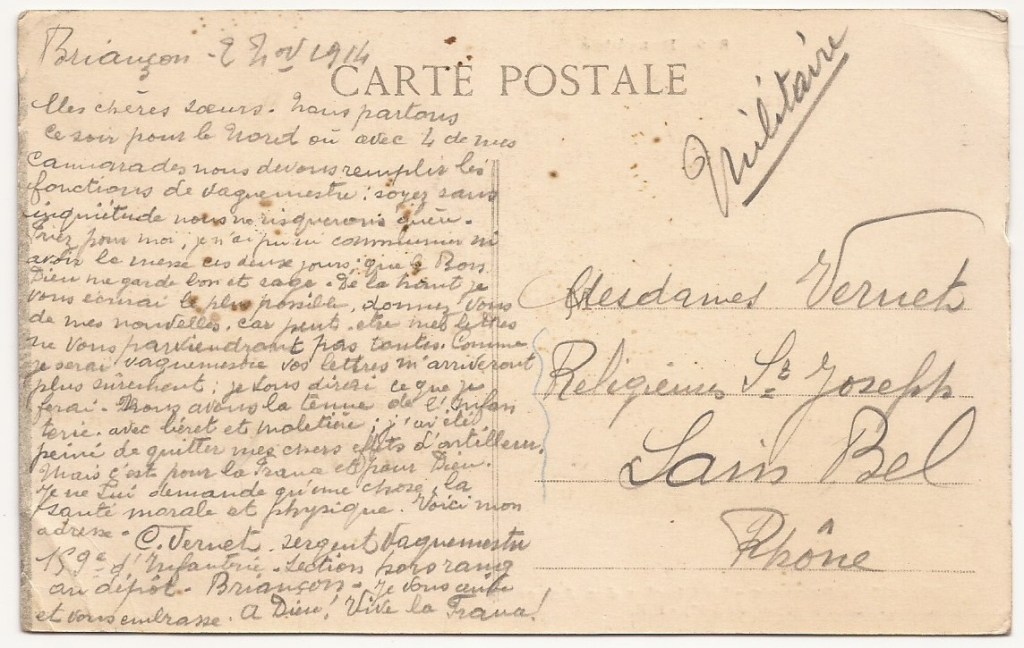 Briançon - 2 Nov 1914
CARTE POSTALE
Militaire
Mes chères sœurs. Nous partons
ce soir pour le Nord où avec 4 de mes
camarades nous devons remplir les
fonctions de vaguemestre : soyez sans
inquiétude nous ne risquerons guère.
Priez pour moi, je n'ai pu ni communier ni
avoir la messe ces deux jours : que le Bon
Dieu me garde bon et sage. De là haut je
vous écrirai le plus possible, donnez vous
de mes nouvelles, car peut-être mes lettres
ne vous parviendront pas toutes. Comme
je serai vaguemestre vos lettres m'arriveront
plus sûrement ; je vous dirai ce que je
ferai. Nous avons la tenue de l'Infan
terie. avec béret et moletière ; j'ai été
peiné de quitter mes chers effets d'artilleur.
Mais c'est pour la France et pour Dieu.
Je ne Lui demande qu'une chose, la
santé morale et physique. Voici mon
adresse - C. Vernet. sergent vaguemestre
159e d'Infanterie. section hors rang
au dépôt. Briançon - Je vous
et vous embrasse. A Dieu ! Vive la France !
Mesdames Vernet
Religieuses St Joseph
Sain Bel
Rhône